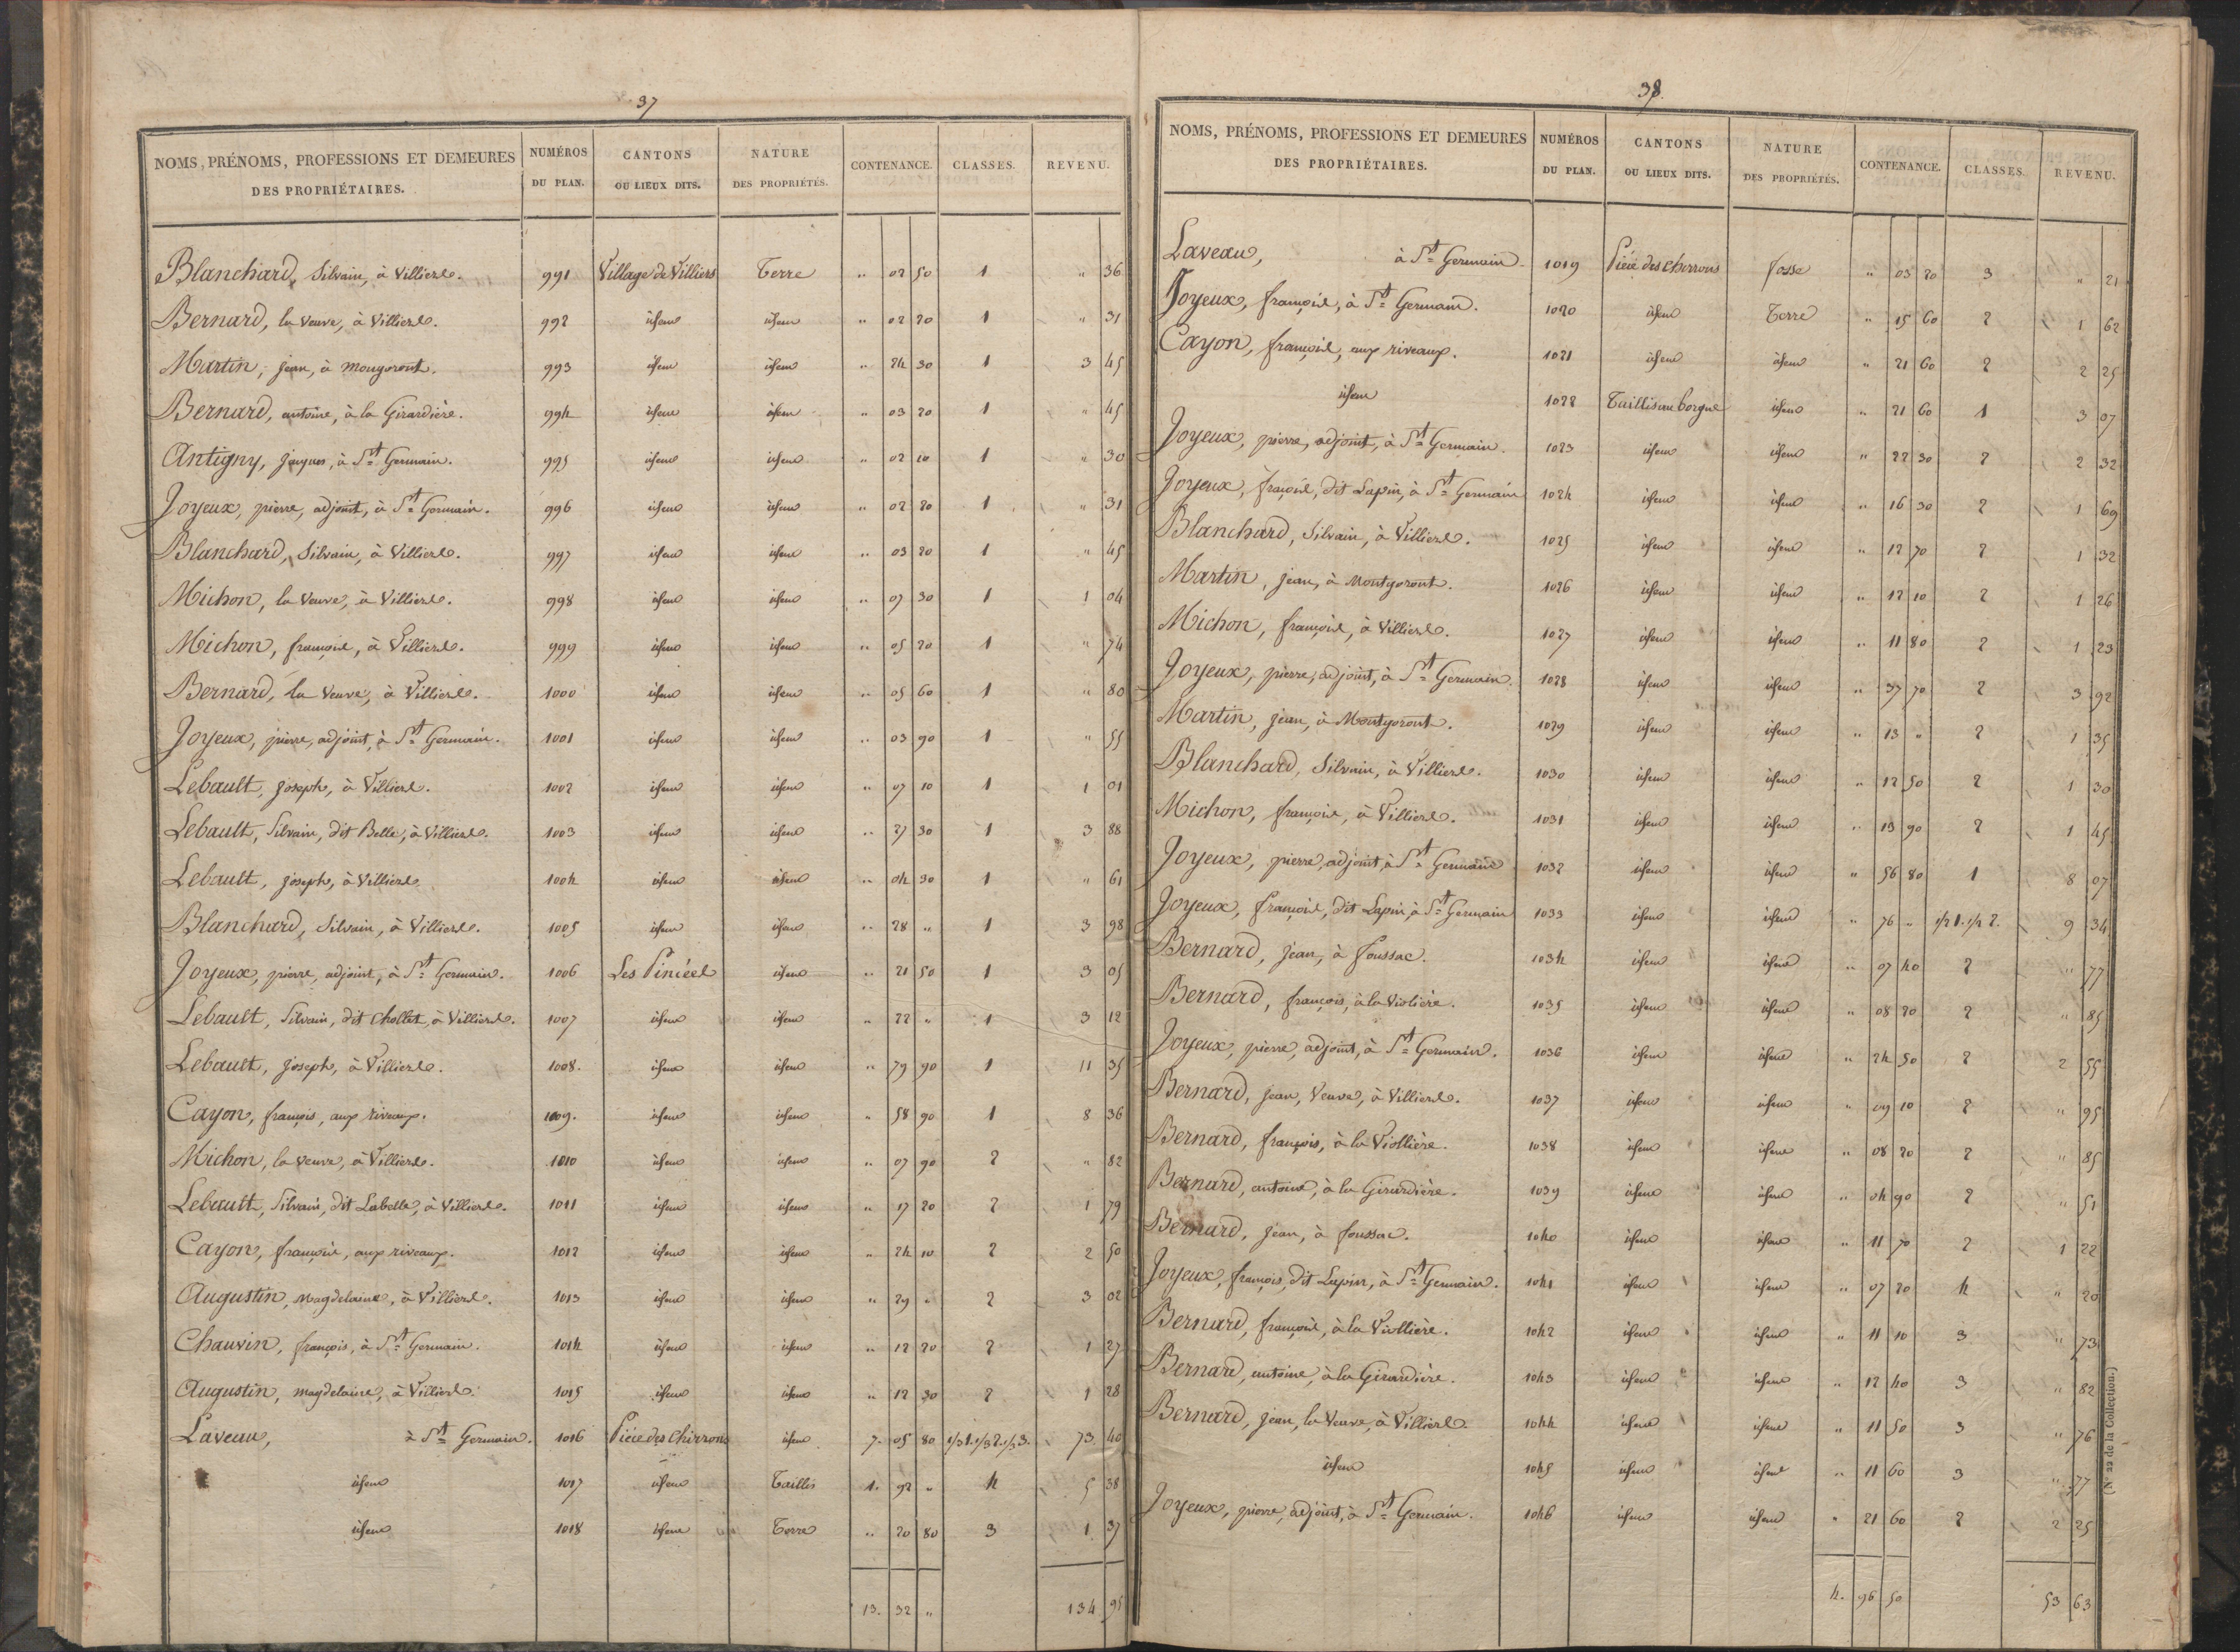 37
NOMS, PRÉNOMS, PROFESSIONS ET DEMEURES DES PROPRIÉTAIRES. NUMÉROS DU PLAN. CANTONS OU LIEUX DITS. NATURE DES PROPRIÉTÉS. CONTENANCE. CLASSES. REVENU.
Blanchard, Silvain, à Villiers. 991 Village de Villiers Terre " 02 50 1 " 36
Bernard, la Veuve, à Villiers. 992 idem idem " 02 20 1 " 31
Martin, jean, à mongoront. 993 idem idem " 24 30 1 3 45
Bernard, antoine, à la Girardière. 994 idem idem " 03 20 1 " 45
Antigny, jacques, à St Germain. 995 idem idem " 02 10 1 " 30
Joyeux, pierre, adjoint, à St Germain. 996 idem idem " 02 20 1 " 31
Blanchard, Silvain, à Villiers. 997 idem idem " 03 20 1 " 45
Michon, la Veuve, à Villiers. 998 idem idem " 07 30 1 1 04
Michon, françois, à Villiers. 999 idem idem " 05 20 1 " 74
Bernard, la Veuve, à Villiers. 1000 idem idem " 05 60 1 " 80
Joyeux, pierre, adjoint, à St Germain. 1001 idem idem " 03 90 1 " 55
Lebault, joseph, à Villiers. 1002 idem idem " 07 10 1 1 01
Lebault, Silvain, dit Belle, à Villiers. 1003 idem idem " 27 30 1 3 88
Lebault, joseph, à Villiers 1004 idem idem " 04 30 1 " 61
Blanchard, Silvain, à Villiers. 1005 idem idem " 28 " 1 3 98
Joyeux, pierre, adjoint, à St Germain. 1006 Les Piniées idem " 21 50 1 3 05
Lebault, Silvain, dit chollet, à Villiers. 1007 idem idem " 22 " 1 3 12
Lebault, joseph, à Villiers. 1008. idem idem " 79 90 1 11 35
Cayon, françois, aux riveaux. 1009. idem idem " 58 90 1 8 36
Michon, la veuve, à Villiers. 1010 idem idem " 07 90 2 " 82
Lebault, Silvain, dit Labelle, à Villiers. 1011 idem idem " 17 20 2 1 79
Cayon, françois, aux riveaux. 1012 idem idem " 24 10 2 2 50
Augustin, Magdelaine, à Villiers. 1013 idem idem " 29 " 2 3 02
Chauvin, françois, à St Germain. 1014 idem idem " 12 20 2 1 27
Augustin, magdelaine, à Villiers. 1015 idem idem " 12 30 2 1 28
Laveau, à St Germain. 1016 Pièce des Chirrons idem 7. 05 80 1/3 1. 1/3 2. 1/3 3. 73. 40
idem 1017 idem Taillis 1. 92 " 4 5 38
idem 1018 idem Terre " 20 80 3 1. 37
13. 32 " 134 95
38.
NOMS, PRÉNOMS, PROFESSIONS ET DEMEURES DES PROPRIÉTAIRES. NUMÉROS DU PLAN. CANTONS OU LIEUX DITS. NATURE DES PROPRIÉTÉS. CONTENANCE. CLASSES. REVENU.
Laveau, à St Germain. 1019 Pièce des cherrons fosse " 03 20 3 " 21
Joyeux, françois, à St Germain. 1020 idem Terre " 15 60 2 1 62
Cayon, françois, aux riveaux. 1021 idem idem " 21 60 2 2 25
idem 1022 Taillis au borgne idem " 21 60 1 3 07
Joyeux, pierre, adjoint, à St Germain. 1023 idem idem " 22 30 2 2 32
Joyeux, françois, dit Lapin, à St Germain 1024 idem idem " 16 30 2 1 69
Blanchard, Silvain, à Villiers. 1025 idem idem " 12 70 2 1 32
Martin, jean, à Montgoront. 1026 idem idem " 12 10 2 1 26
Michon, françois, à Villiers. 1027 idem idem " 11 80 2 1 23
Joyeux, pierre, adjoint, à St Germain. 1028 idem idem " 37 70 2 3 92
Martin, jean, à Montgoront. 1029 idem idem " 13 " 2 1 35
Blanchard, Silvain, à Villiers. 1030 idem idem " 12 50 2 1 30
Michon, françois, à Villiers. 1031 idem idem " 13 90 2 1 45
Joyeux, pierre, adjoint, à St Germain 1032 idem idem " 56 80 1 8 07
Joyeux, françois, dit Lapin, à St Germain 1033 idem idem " 76 " 1/2 1. 1/2 2. 9 34
Bernard, jean, à foussac. 1034 idem idem " 07 40 2 " 77
Bernard, françois, à la Violière. 1035 idem idem " 08 20 2 " 85
Joyeux, pierre, adjoint, à St Germain. 1036 idem idem " 24 50 2 2 55
Bernard, jean, Veuve, à Villiers. 1037 idem idem " 09 10 2 " 95
Bernard, françois, à la Viollière. 1038 idem idem " 08 20 2 " 85
Bernard, antoine, à la Girardière. 1039 idem idem " 04 90 2 " 51
Bernard, jean, à foussac. 1040 idem idem " 11 70 2 1 22
Joyeux, françois, dit Lapin, à St Germain. 1041 idem idem " 07 20 4 " 20
Bernard, françois, à la Viollière. 1042 idem idem " 11 10 3 " 73
Bernard, antoine, à la Girardière. 1043 idem idem " 12 40 3 " 82
Bernard, jean, la Veuve, à Villiers. 1044 idem idem " 11 50 3 " 76
idem 1045 idem idem " 11 60 3 " 77
Joyeux, pierre, adjoint, à St Germain. 1046 idem idem " 21 60 2 2 25
4. 96 50 53 63
(N° 22 de la Collection.)